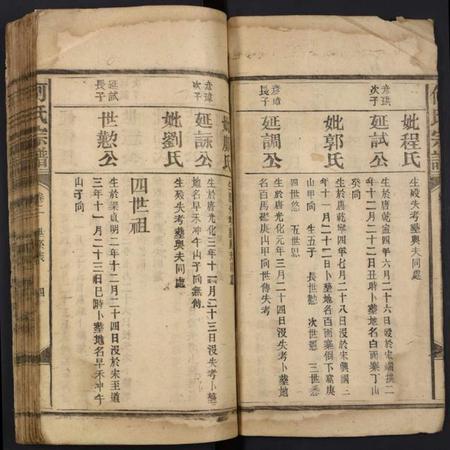 何氏宗譜
妣程氏
生歿失考塟與夫同處
彦琪
次子
延試公
生於唐乾
四年六月二十六日沒於宋
二
年十二月二十二日丑時卜塟地名白雨寨丁山
癸向
妣郭氏
生於唐乾寧四年七月二十八日沒於宋
年十一月二十二日卜塟地名百雨寨倒下窩庚
山甲向
生五子
長世懃
次世
三世
四世
五世
彦璋
次子
延調公
生於唐光化元年三月二十四日沒失考卜塟地
名百馬
庚山甲向世傳失考
妣
氏
生
處
延詠公
生於唐光化三年十一月二十三日沒失考卜塟
地名早禾冲午山子向無傳
妣劉氏
生歿失考塟與夫同處
四世祖
延試
長子
世懃公
生於梁貞明二年十二月二十四日沒於宋至道
三年十一月二十三日巳時卜塟地名早禾冲午
山子向
何氏宗譜
四